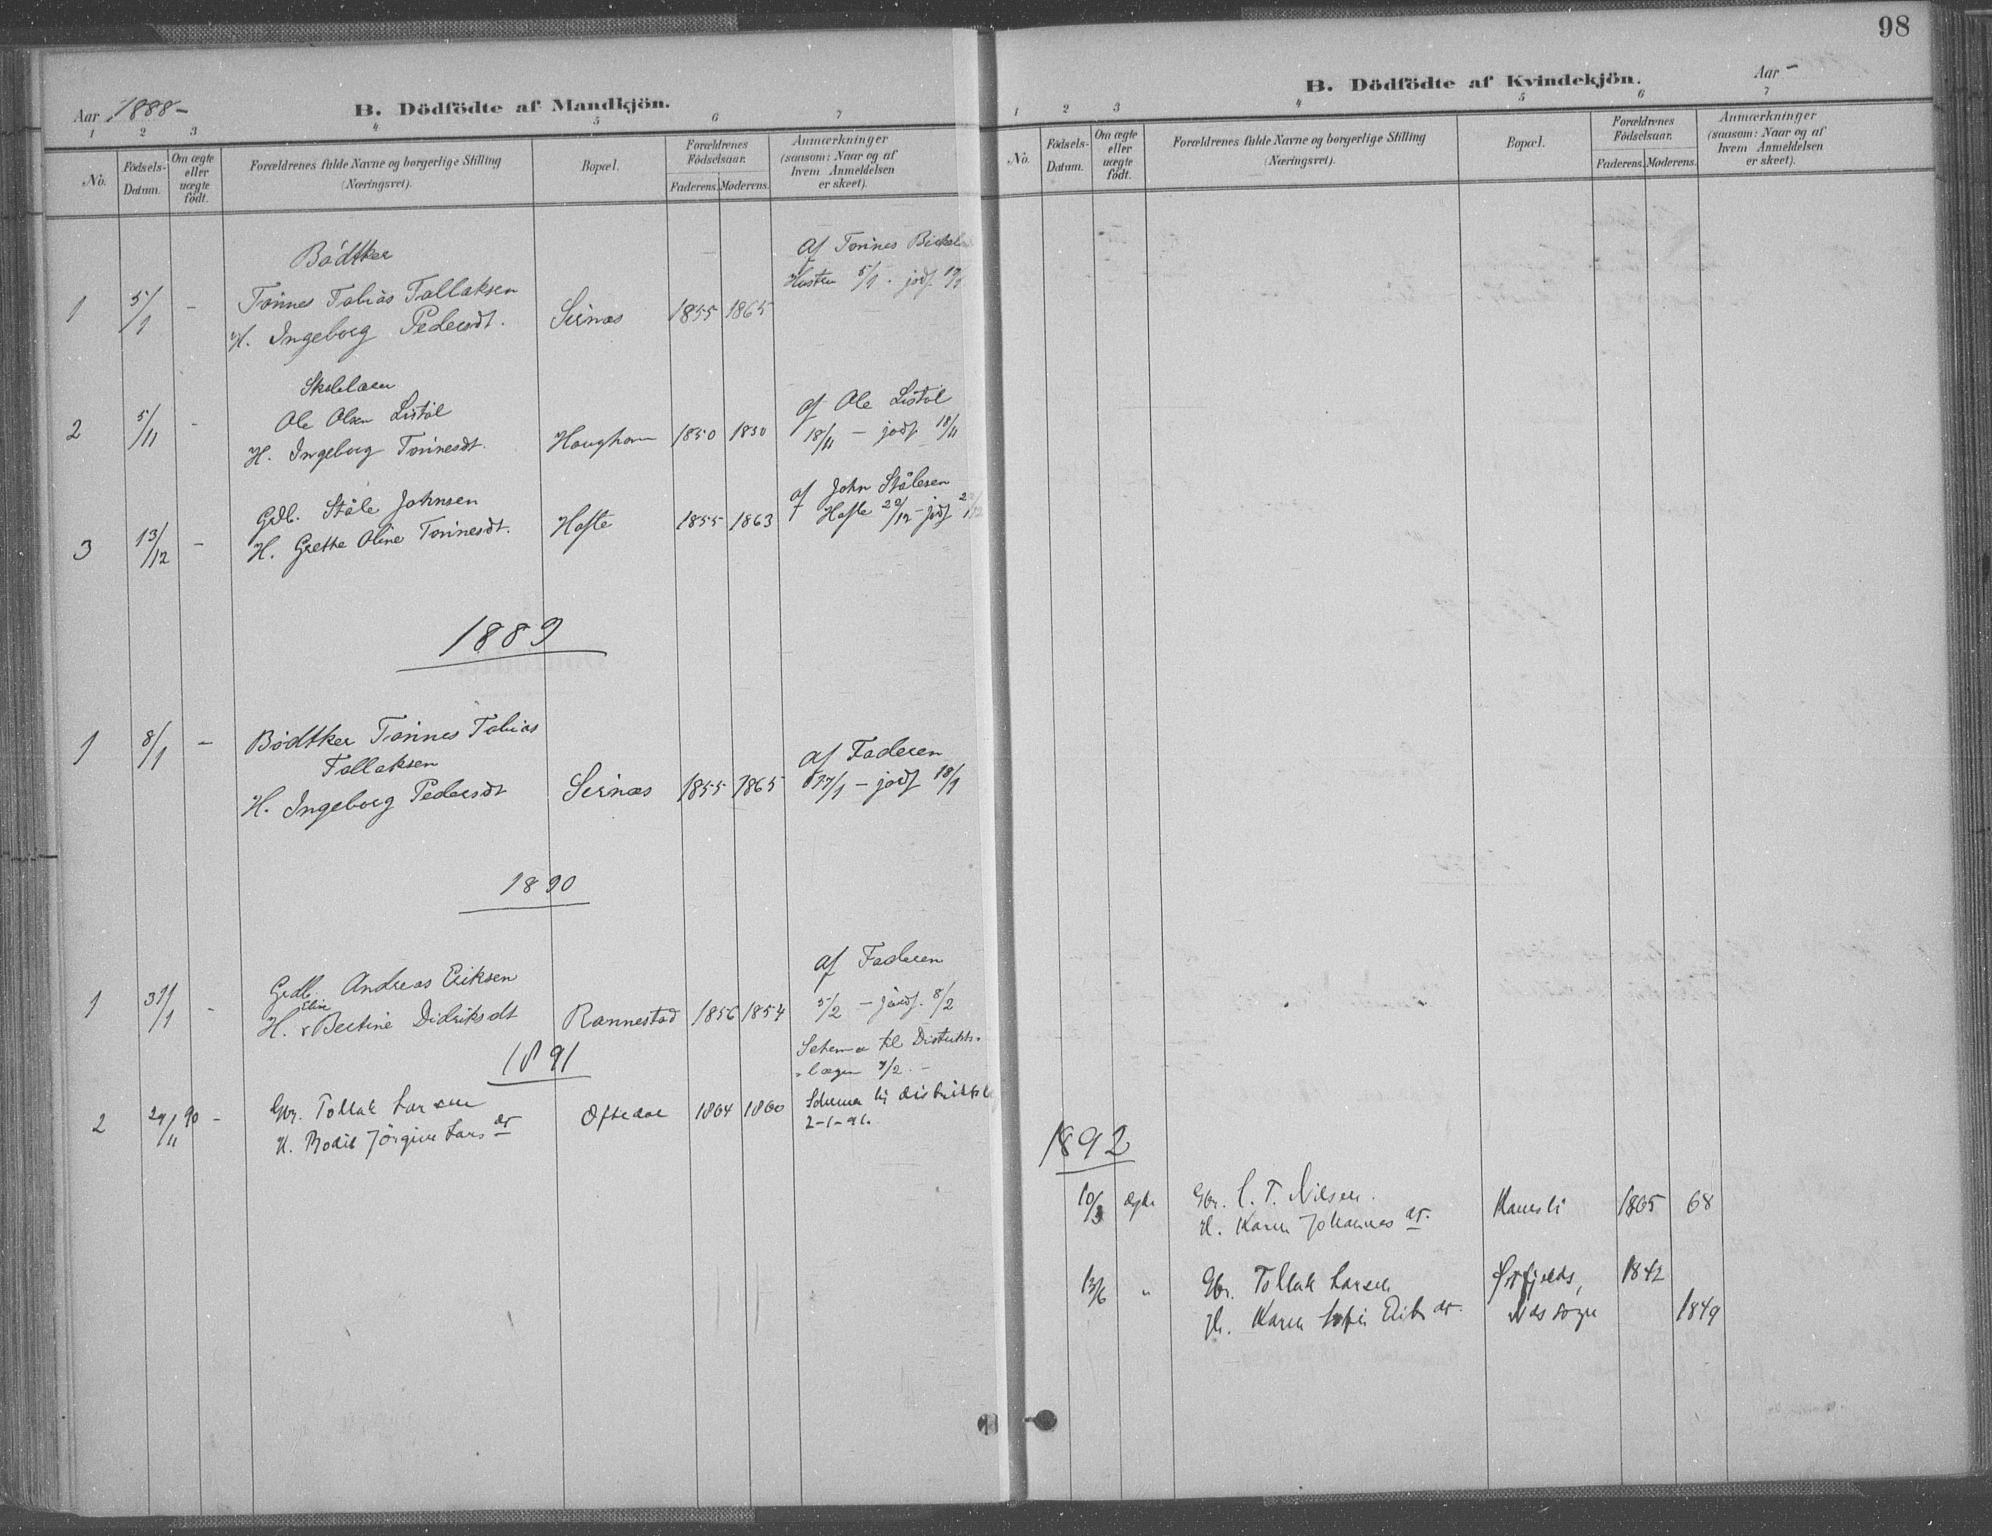 98
Aar 1888-
B. Dödfödte af Mandkjön.
1 2 3 4 5 6 7
No.
Födsels-
Datum.
Om ægte
eller
uægte
födt.
Forældrenes fulde Navne og borgerlige Stilling
(Næringsvei).
Bopæl.
Forældrenes
Födselsaar.
Faderens. Moderens.
Anmærkninger
(saasom: Naar og af
hvem Anmeldelsen
er skeet).
Bödtker
Tönnes Tobias Tallaksen
H. Ingeborg Pedersdt.
1 5/1 - Sirnæs 1855 1865
af Tönnes
5/1 - jordf.
Ole Olsen Listöl
H. Ingeborg Tönnesdt.
2 5/11 - Haughom 1850 1850
af Ole Listöl
18/11 - jordf 18/11
Gdb. Ståle Johnsen
H. Grethe Oline Tönnesdt.
3 13/12 - Hafte 1855 1863
af John Stålesen
Hafte 22/12 - jordf
1889
1 8/1 - Bödtker Tönnes Tobias
Tallaksen
H. Ingeborg Pedersdt Sirnæs 1855 1865
af Faderen
17/1 - jordf 18/1
1890
1 31/1 - Grdb. Andreas Eriksen
Elin
H. Bertine Didriksdt Rannestad 1856 1854
af Faderen
5/2 - jordf. 8/2
Schema til Distrikts-
lægen /2. -
1891
2 29/11 90 - Gbr. Tollak Larsen
H. Bodil Jörgine Larsdt Öftedal 1864 1860
Schema til distriktsl
2-1-91.
B. Dödfödte af Kvindekjön.
Aar -
1 2 3 4 5 6 7
No.
Födsels-
Datum.
Om ægte
eller
uægte
födt.
Forældrenes fulde Navne og borgerlige Stilling
(Næringsvei).
Bopæl.
Forældrenes
Födselsaar.
Faderens. Moderens.
Anmærkninger
(saasom: Naar og af
hvem Anmeldelsen
er skeet).
1892
10/3 ægte Gbr. T. Nilsen.
H. Karen Johannesdt. 1865 68
13/6 " Gbr. Tollak Larsen 1842
H. Karen Sofie Eriksdt. Nes sogn 1849